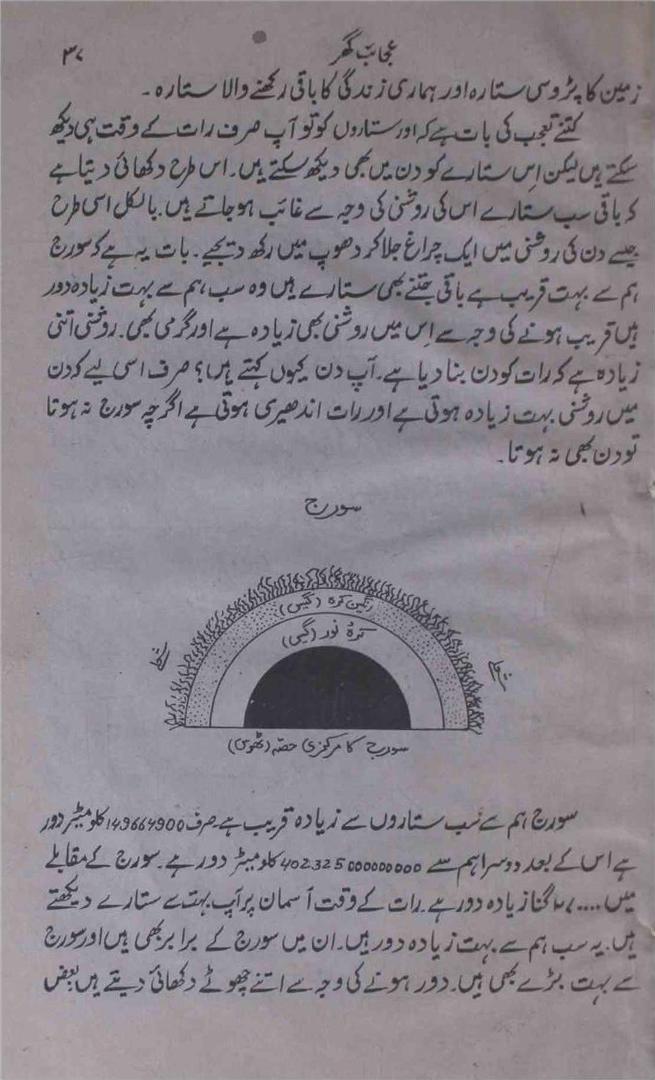 عجائب گھر ۳۷
زمین کا پڑوسی ستارہ اور ہماری زندگی کا باقی رکھنے والا ستارہ ۔
کتنے تعجب کی بات ہے کہ اور ستاروں کو تو آپ صرف رات کے وقت ہی دیکھ
سکتے ہیں لیکن اِس ستارے کو دن میں بھی دیکھ سکتے ہیں۔ اس طرح دکھائی دیتا ہے
کہ باقی سب ستارے اس کی روشنی کی وجہ سے غائب ہو جاتے ہیں۔ بالکل اسی طرح
جیسے دن کی روشنی میں ایک چراغ جلا کر دھوپ میں رکھ دیجیے ۔ بات یہ ہے کہ سورج
ہم سے بہت قریب ہے باقی جتنے بھی ستارے ہیں وہ سب ہم سے بہت زیادہ دور
ہیں قریب ہونے کی وجہ سے اِس میں روشنی بھی زیادہ ہے اور گرمی بھی۔ روشنی اتنی
زیادہ ہے کہ رات کو دن بنا دیا ہے۔ آپ دن کیوں کہتے ہیں؟ صرف اسی لیے کہ دن
میں روشنی بہت زیادہ ہوتی ہے اور رات اندھیری ہوتی ہے اگرچہ سورج نہ ہوتا
تو دن بھی نہ ہوتا۔
سورج
رنگین کرہ (گیس)
کرۂ نور (گیس)
سورج کا مرکزی حصہ (ٹھوس)
سورج ہم سے سب ستاروں سے زیادہ قریب ہے۔ صرف 149664900 کلو میٹر دور
ہے اس کے بعد دوسرا ہم سے 402325000000000 کلو میٹر دور ہے۔ سورج کے مقابلے
میں گنا زیادہ دور ہے۔ رات کے وقت آسمان پر آپ بہت سے ستارے دیکھتے
ہیں۔ یہ سب ہم سے بہت زیادہ دور ہیں۔ ان میں سورج کے برابر بھی ہیں اور سورج
سے بہت بڑے بھی ہیں۔ دور ہونے کی وجہ سے اتنے چھوٹے دکھائی دیتے ہیں بعض